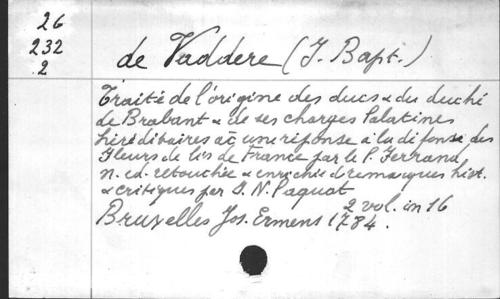 26
232
2
de Vaddere (J. Bapt.)
Traité de l'origine des ducs & du duché
de Brabant & de ses charges Palatines
héréditaires ac une réponse à la défense des
fleurs de lis de France par le P. Ferrand
n. ed. retouchée & enrichie de remarques hist.
& critiques par J. N. Paquot
2 vol. in 16
Bruxelles Jos. Ermens 1784.